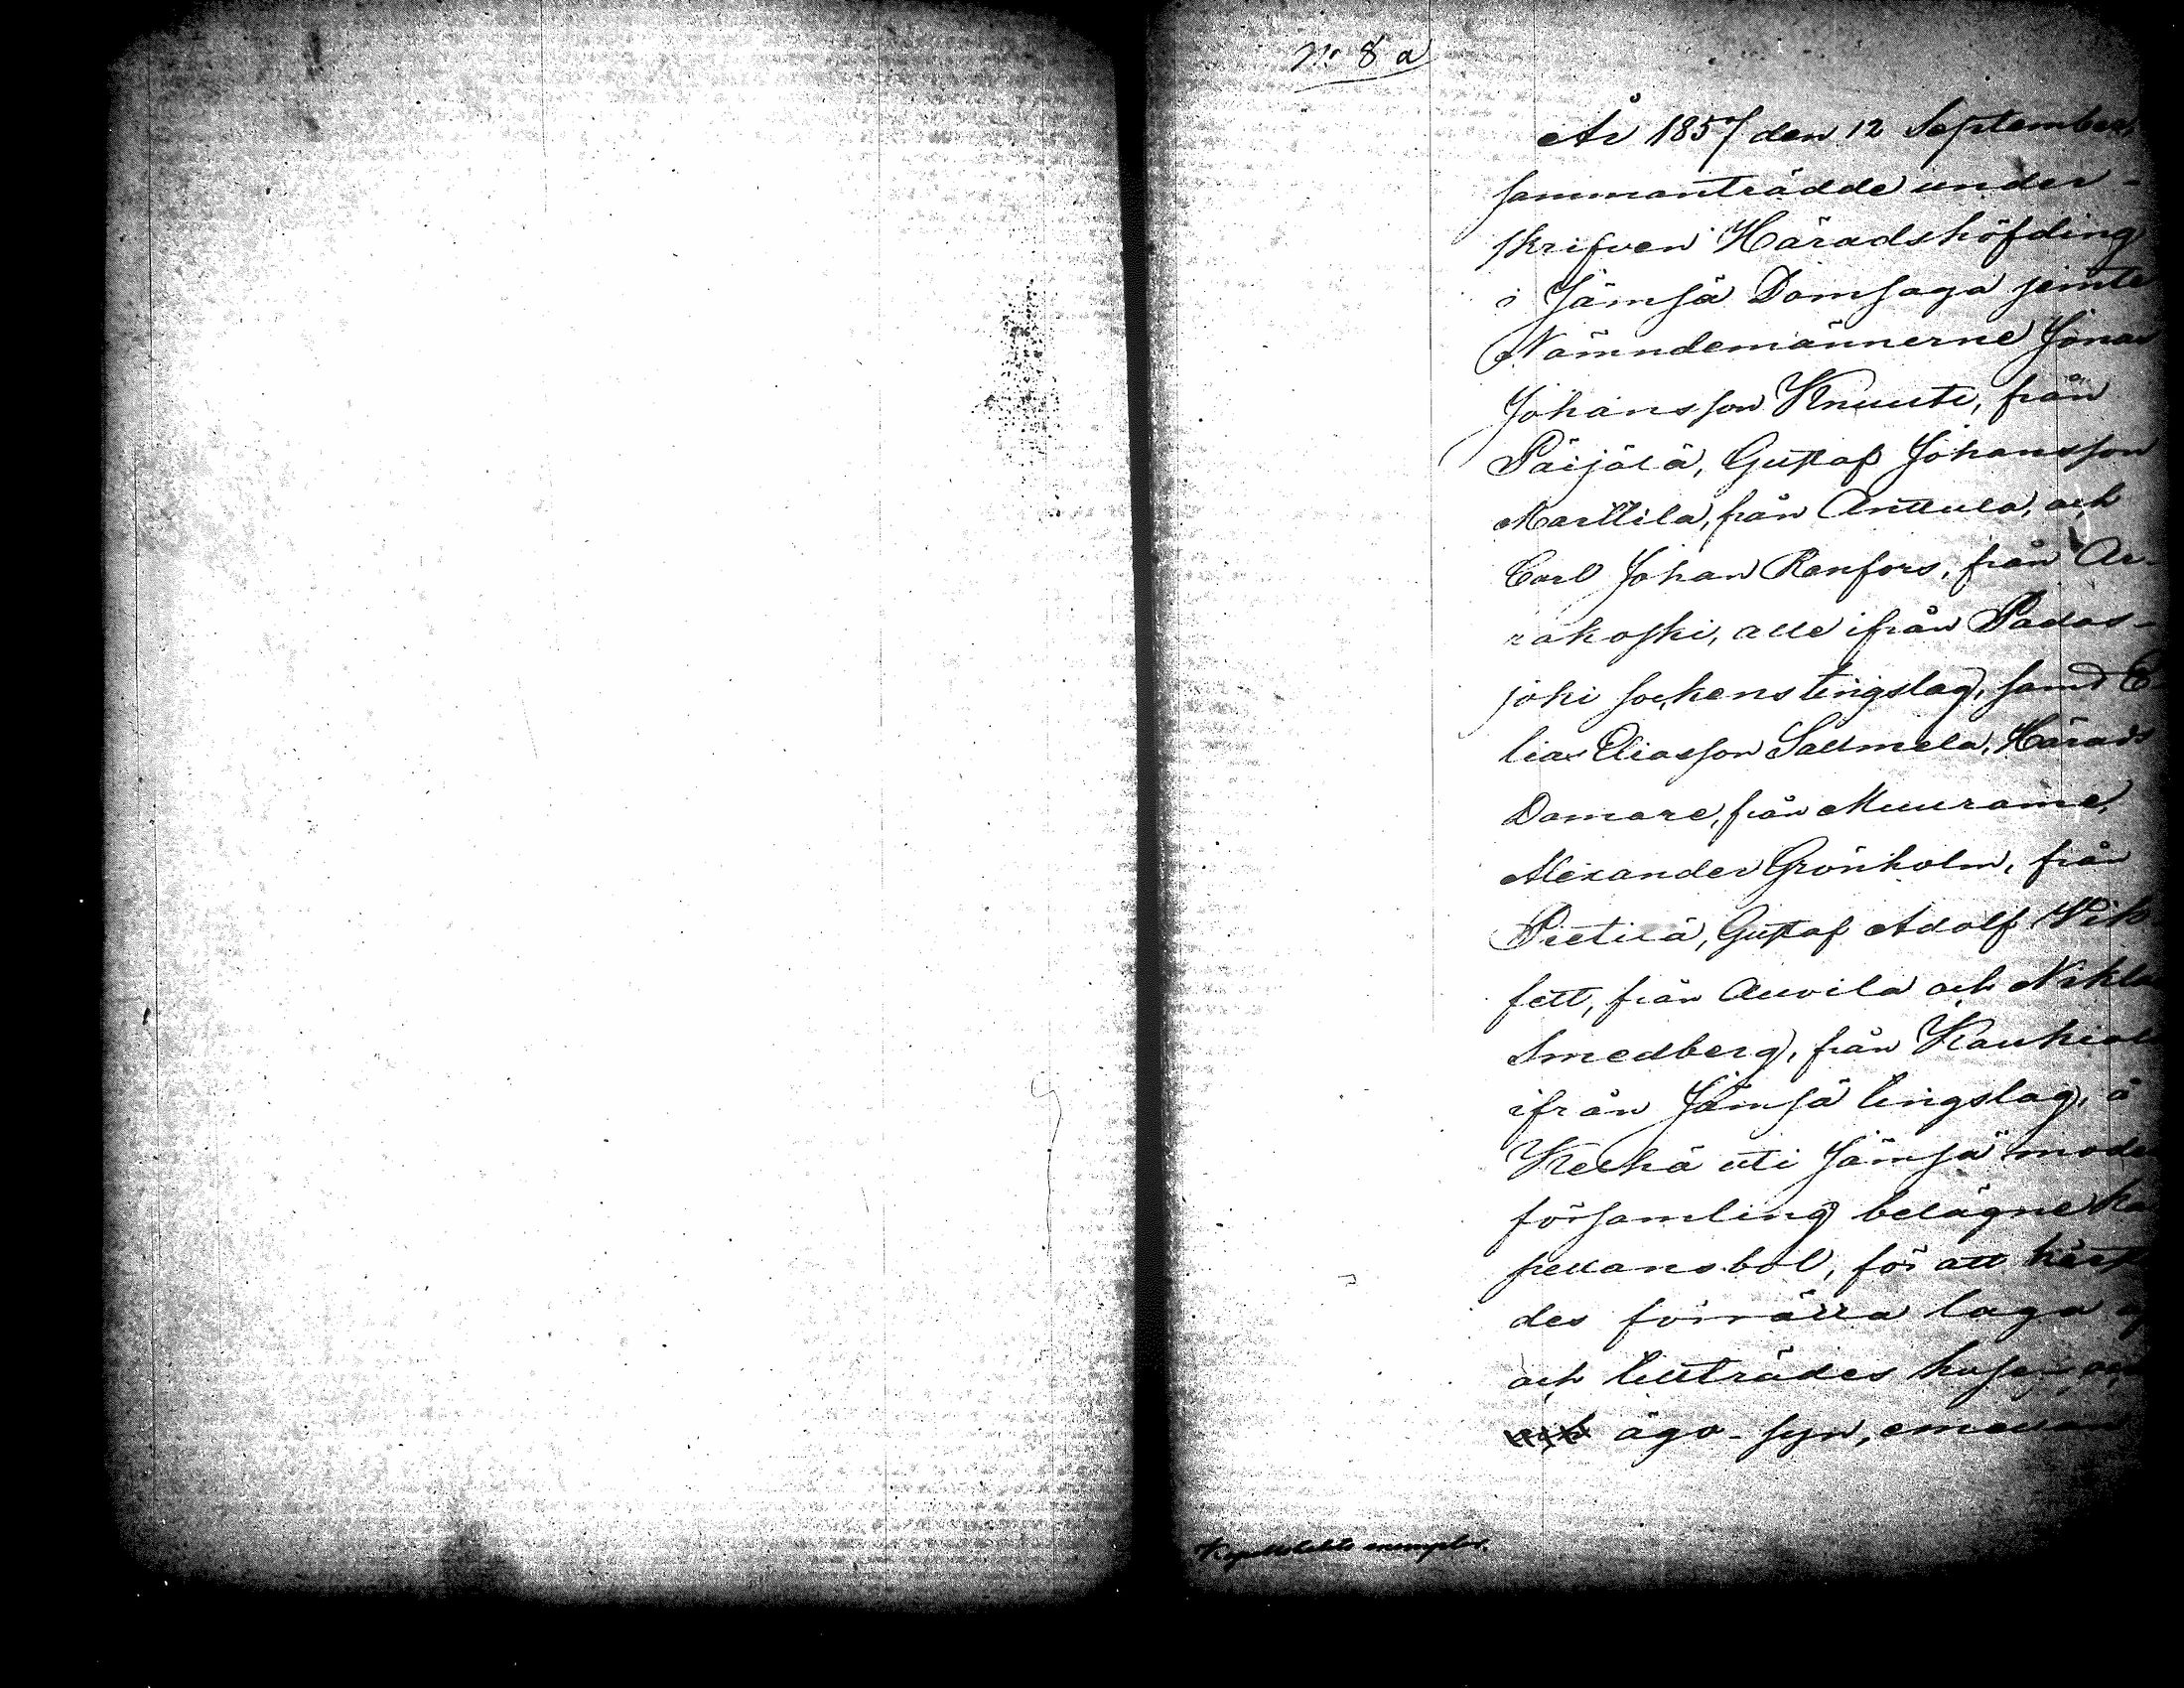 N:o 8 a
År 1857 den 12 September,
sammanträdde under-
skrifven Häradshöfding
i Jämsä Domsaga jemte
Nämndemännerne Jonas
Johansson Knuuti, från
Päijälä, Gustaf Johansson
Marttila, från Anttula, och
Carl Johan Renfors, från Ar-
rakoski, alle ifrån Padas-
joki sockens tingslag, samt E-
lias Eliasson Sallmela, Härads
Domare, från Muurame,
Alexander Grönholm, från
Pietilä, Gustaf Adolf Wik
fett, från Auvila och Niklas
Smedberg, från Kauhiala
ifrån Jämsä tingslag, å
Kerhä uti Jämsä moder
församling belägne ka
pellansbol, för att härst
des förrätta laga af
och tillträdes huse- och
ägo-syn, emellan